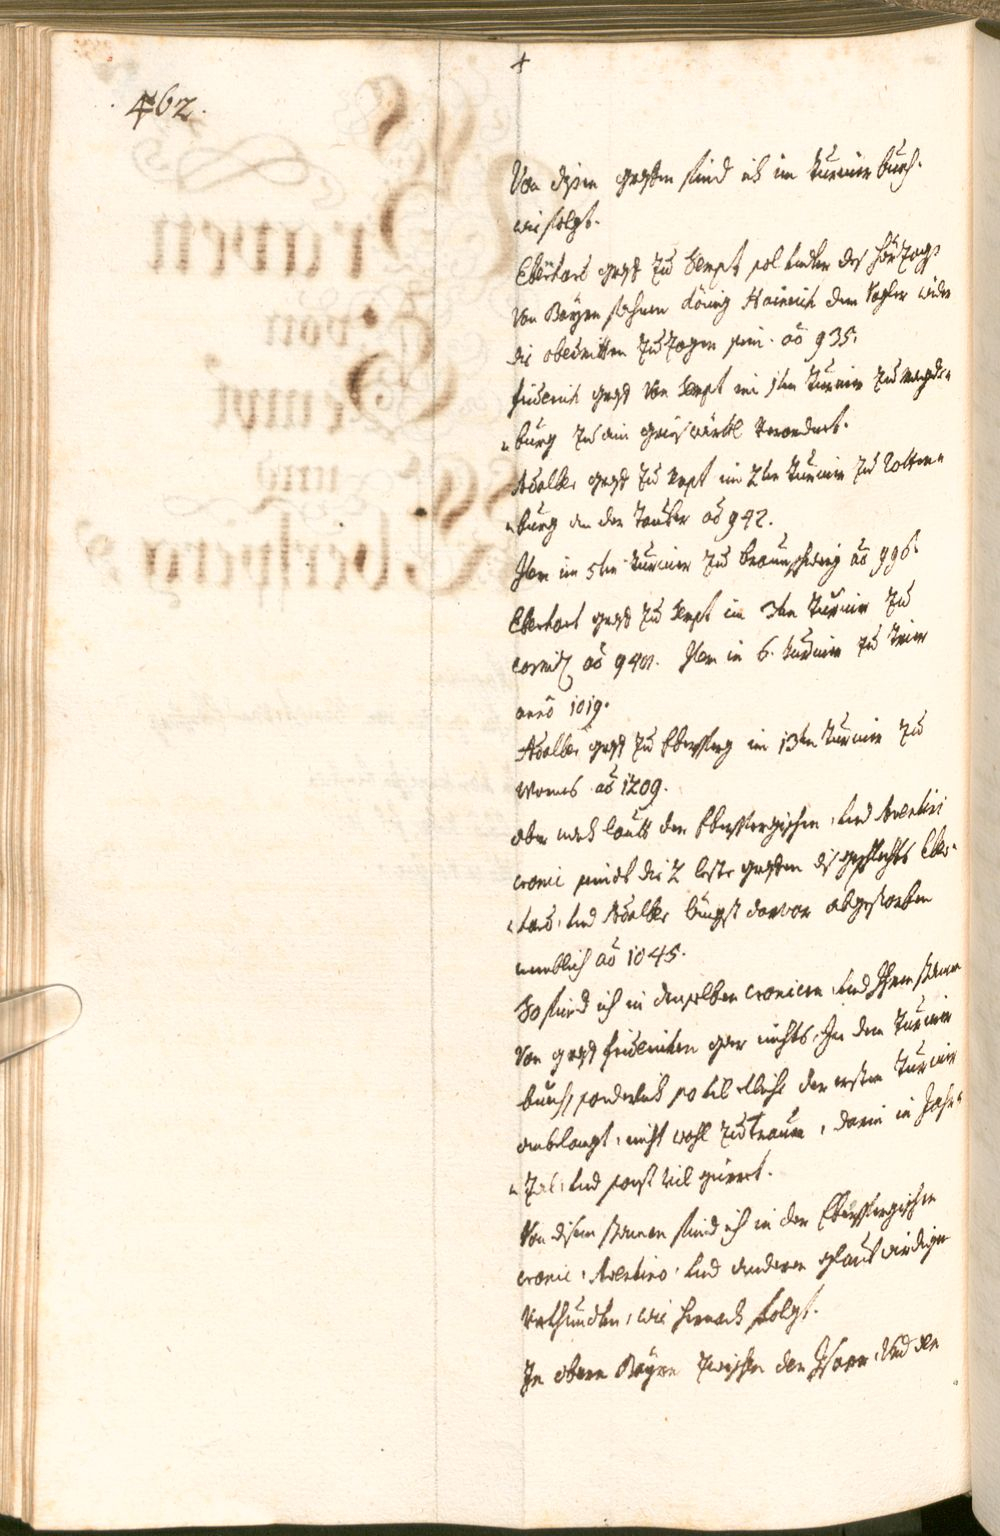 462.
+
Von disen graffen find ich im turnier buech.
wie folgt.
Eberhart graff zu Sempt sol under des Hörzogs
von Bayrn fahnen König Hainrich dem Vogler wider
die obedritten zuzogen sein. aõ 935.
Friderich graff von Sempt im 1ten Turnier zu Magde-
-burg zu ain grieswärtl verordnet.
Adalber graff zu Sempt im 2ten Turnier zu Rotten-
-burg an der Tauber aõ 942.
Item im 5ten Turnier zu Braunschweig aõ 996.
Eberhart graff zu Sempt im 3ten Turnier zu
Costnitz aõ 948. Item im 6. turnier zu Trier
anno 1019.
Adalber graff zu Ebersperg im 13ten Turnier zu
Worms aõ 1209.
aber nach lauth der Ebersbergischen, und Aventini
cronic seindt die 2 leste graffen diß geschlechts Eber-
-hard, und Adalber lengst darvor abgestorben
nemblich aõ 1045.
So find ich in denselben cronicen, und Ihrem stamen
von graff Friderichen gar nichts, In dem Turnier
buech, sonderlich so vil etliche der ersten Turnier
anbelangt, nicht wohl zu traun, darin in Jahr-
-zal, und sonst vil geirret.
Von disem stamen find ich in der Eberspergischen
cronic, Aventino, und anderen glaubwirdigen
Urkhundten, wie hernach folgt.
In obern Bayrn zwischen der Isser, und der